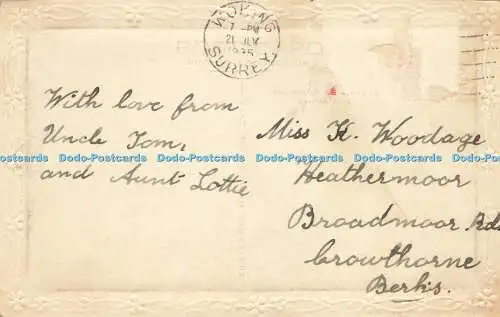 WOKING
7 PM
21 JLY
1935
SURREY
With love from
Uncle Tom,
and Aunt Lottie
Miss K. Woodage
Heathermoor
Broadmoor Rd.
Crowthorne
Berks.
Dodo-Postcards Dodo-Postcards Dodo-Postcards Dodo-Postcards Dodo-Postcards